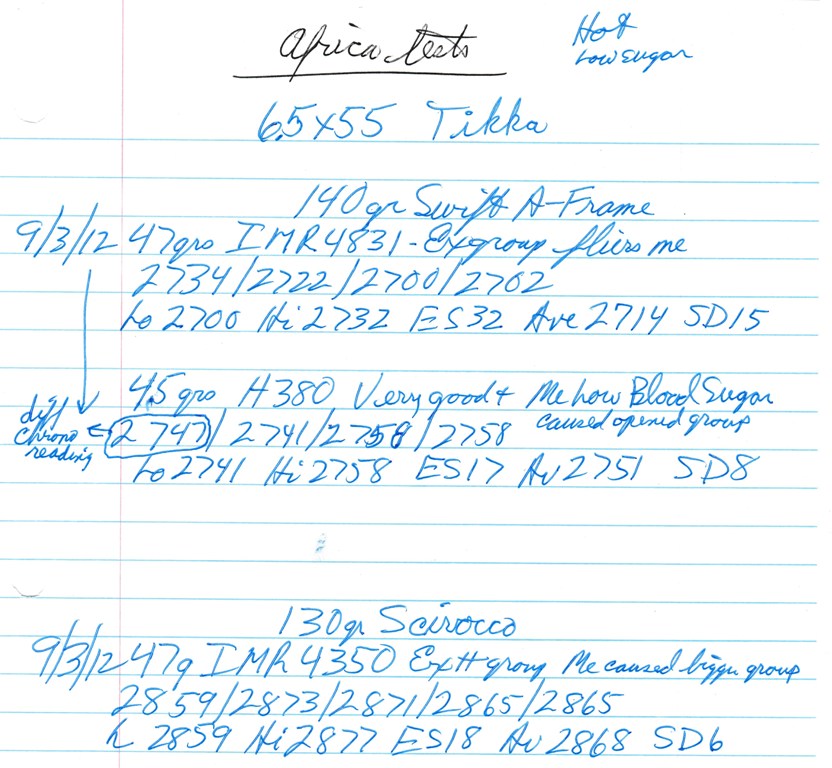 Africa tests
Hot
Low sugar
6.5x55 Tikka
140gr Swift A-Frame
9/3/12 47grs IMR4831 - Ex group fliers me
2734/2722/2700/2702
Lo 2700 Hi 2732 ES32 Ave 2714 SD15
45grs H380 Very good + Me Low Blood Sugar
caused opened group
diff
chrono
reading
2747/ 2741/2758/2758
Lo 2741 Hi 2758 ES17 Av 2751 SD8
130gr Scirocco
9/3/12 47g IMR 4350 Ex++ group Me caused bigger group
2859/2873/2871/2865/2865
L 2859 Hi 2877 ES18 Av 2868 SD6